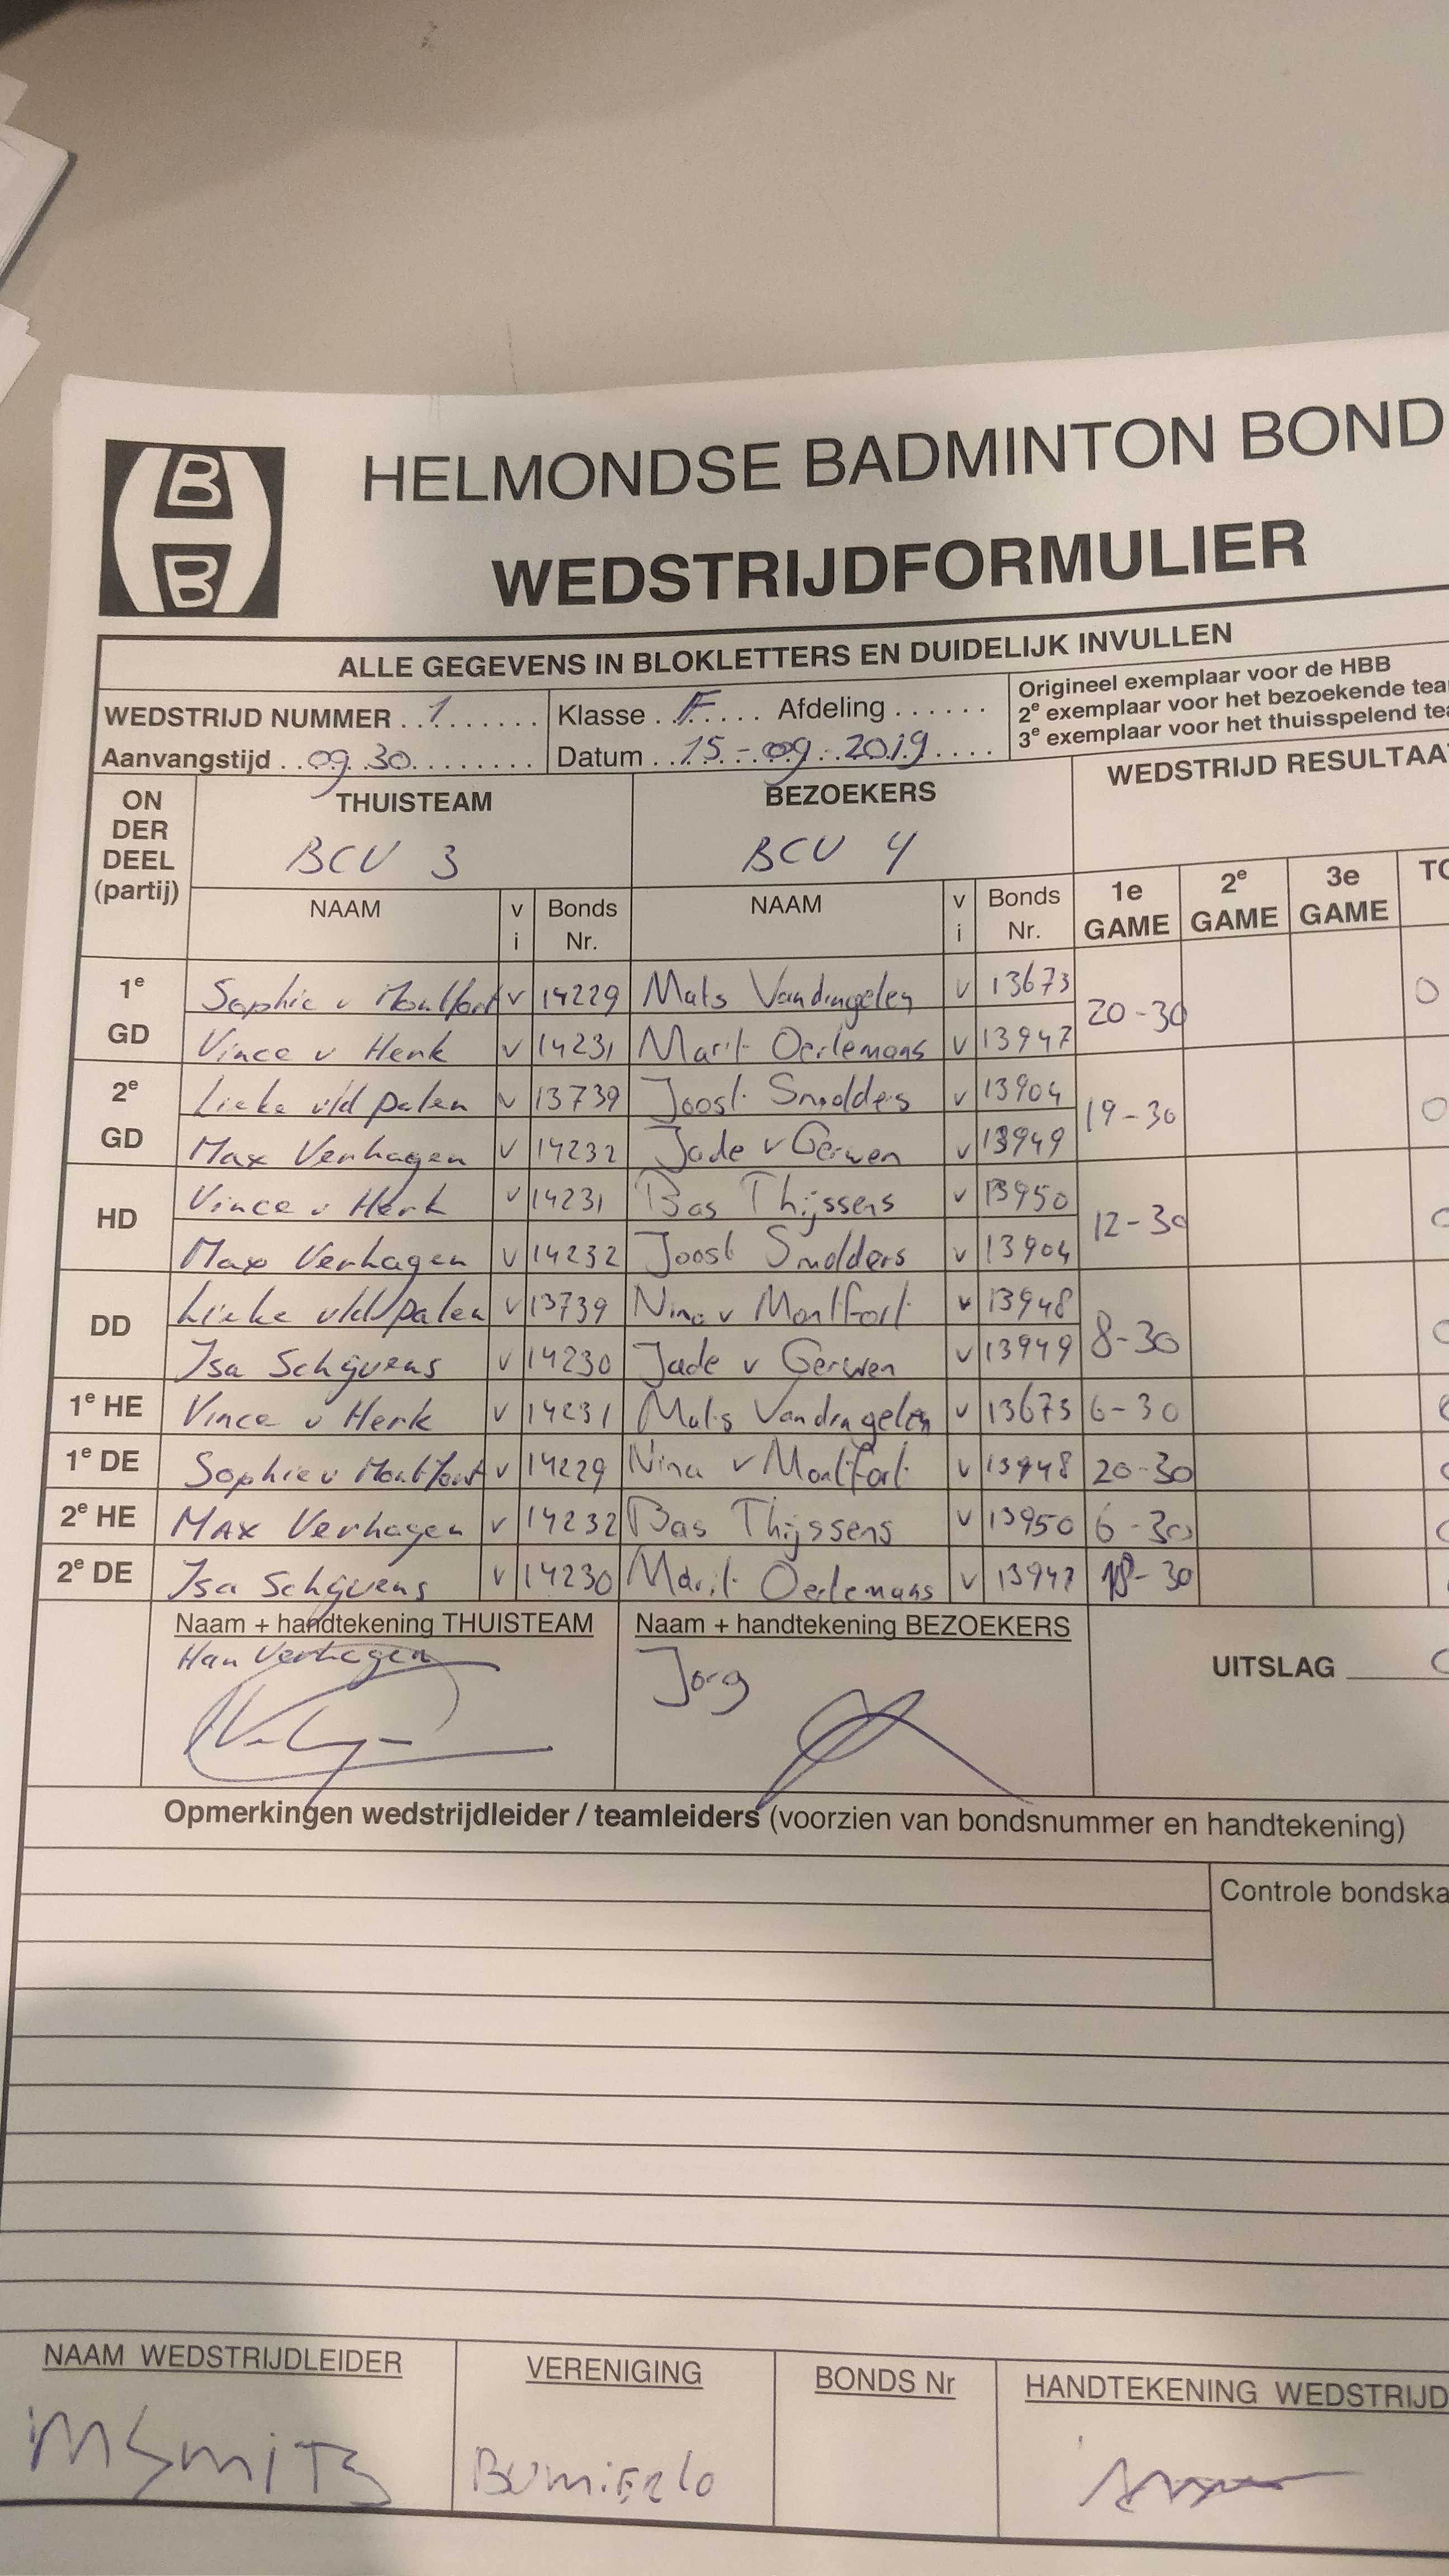 B
B
HELMONDSE BADMINTON BOND
WEDSTRIJDFORMULIER
ALLE GEGEVENS IN BLOKLETTERS EN DUIDELIJK INVULLEN
WEDSTRIJD NUMMER ..1....... Klasse ..F..... Afdeling ......
Origineel exemplaar voor de HBB
2e exemplaar voor het bezoekende tea
3e exemplaar voor het thuisspelend te
Aanvangstijd ..09.30......... Datum ..15-09-2019....
ON DER DEEL (partij)
THUISTEAM BEZOEKERS WEDSTRIJD RESULTAA
BCV 3 BCV 4
NAAM v i Bonds Nr. NAAM v i Bonds Nr. 1e GAME 2e GAME 3e GAME TO
1e GD Sophie v Montfort v 14229 Mats Vandingelen v 13673 20-30 0
Vince v Henk v 14231 Marit Oerlemans v 13947
2e GD Lieke v/d palen v 13739 Joost Smolders v 13904 19-30 0
Max Verhagen v 14232 Jade v Gerwen v 13949
HD Vince v Henk v 14231 Bas Thijssens v 13950 12-30
Max Verhagen v 14232 Joost Smolders v 13904
DD Lieke v/d palen v 13739 Nina v Montfort v 13948 8-30
Isa Schijvens v 14230 Jade v Gerwen v 13949
1e HE Vince v Henk v 14231 Mats Vandingelen v 13673 6-30
1e DE Sophie v Montfort v 14229 Nina v Montfort v 13948 20-30
2e HE Max Verhagen v 14232 Bas Thijssens v 13950 6-30
2e DE Isa Schijvens v 14230 Marit Oerlemans v 13947 18-30
Naam + handtekening THUISTEAM Naam + handtekening BEZOEKERS
Han Verhagen Jorg
UITSLAG
Opmerkingen wedstrijdleider / teamleiders (voorzien van bondsnummer en handtekening)
Controle bondska
NAAM WEDSTRIJDLEIDER VERENIGING BONDS Nr HANDTEKENING WEDSTRIJD
MSmiTS BCMiERlo